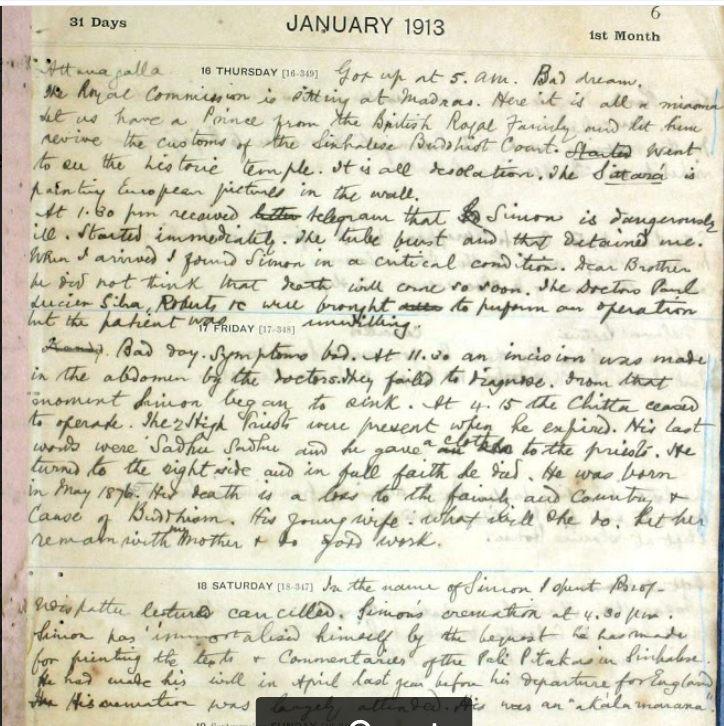 31 Days
JANUARY 1913
6
1st Month
Attanagalla 16 THURSDAY [16-349] Got up at 5. am. Bad dream.
The Royal Commission is sitting at Madras. Here it is all a miasma
Let us have a Prince from the British Royal Family and let him
revive the customs of the Sinhalese Buddhist Court. Started Went
to see the historic temple. It is all desolation. The Sittara is
painting European pictures in the wall.
At 1.30 pm received letter telegram that Simon is dangerously
ill. Started immediately. The tube burst and that detained me.
When I arrived I found Simon in a critical condition. Dear Brother
he did not think that death will come so soon. The Doctors Paul
Lucien Silva, Roberts &c were brought to perform an operation
but the patient was unwilling.
17 FRIDAY [17-348]
Bad day. Symptoms bad. At 11.30 an incision was made
in the abdomen by the doctors. They failed to diagnose. From that
moment Simon began to sink. At 4.15 the Chitta ceased
to operate. The 2 High Priests were present when he expired. His last
words were Sadhu Sadhu and he gave a cloth to the priests. He
turned to the right side and in full faith he died. He was born
in May 1876. His death is a loss to the family and Country &
Cause of Buddhism. His young wife. what will she do. Let her
remain with my Mother & do good work.
18 SATURDAY [18-347] In the name of Simon I spent
lectures cancelled. Simon's cremation at 4.30 pm.
Simon has immortalised himself by the bequest he has made
for printing the texts & Commentaries of the Pali Pitakas in Sinhalese.
He had made his will in April last year before his departure for England
His cremation was largely attended. His was an "akalamarana".